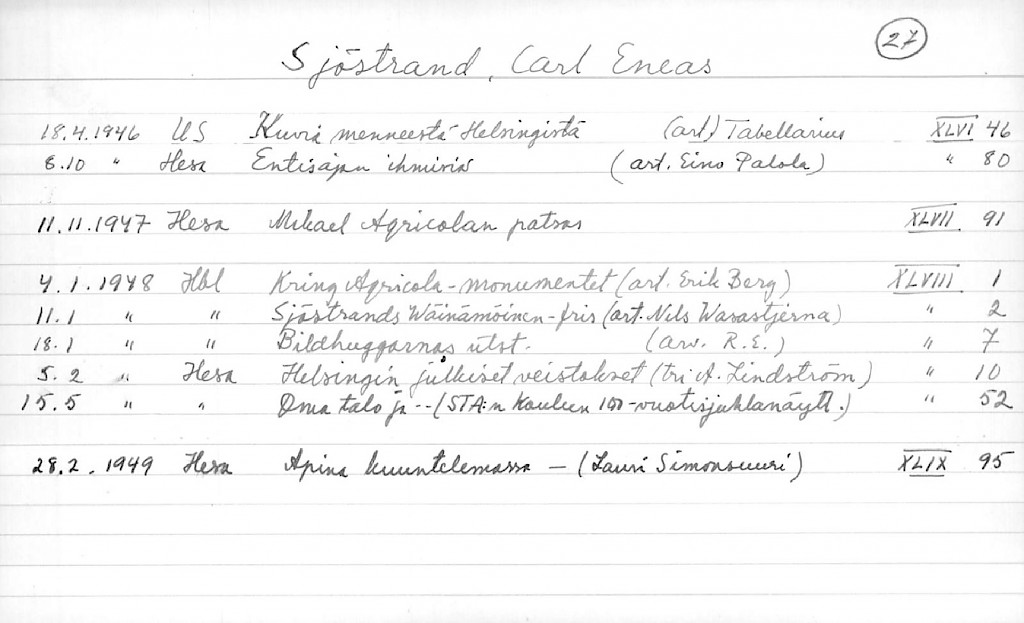 27
Sjöstrand, Carl Eneas
18.4.1946 US Kuvia menneestä Helsingistä (art) Tabellarius XLVI 46
8.10 " Hesa Entisajan ihmisiä (art. Eino Palola) " 80
11.11.1947 Hesa Mikael Agricolan patsas XLVII 91
4.1.1948 Hbl Kring Agricola-monumentet (art. Erik Berg) XLVIII 1
11.1 " " Sjöstrands Wäinämöinen-fris (art. Nils Wasastjerna) " 2
18.1 " " Bildhuggarnas utst. (arv. R.E.) " 7
5.2 " Hesa Helsingin julkiset veistokset (tri A. Lindström) " 10
15.5 " " Oma talo ja -- (STA:n koulun 100-vuotisjuhlanäytt.) " 52
28.2.1949 Hesa Apina kuuntelemassa — (Lauri Simonsuuri) XLIX 95